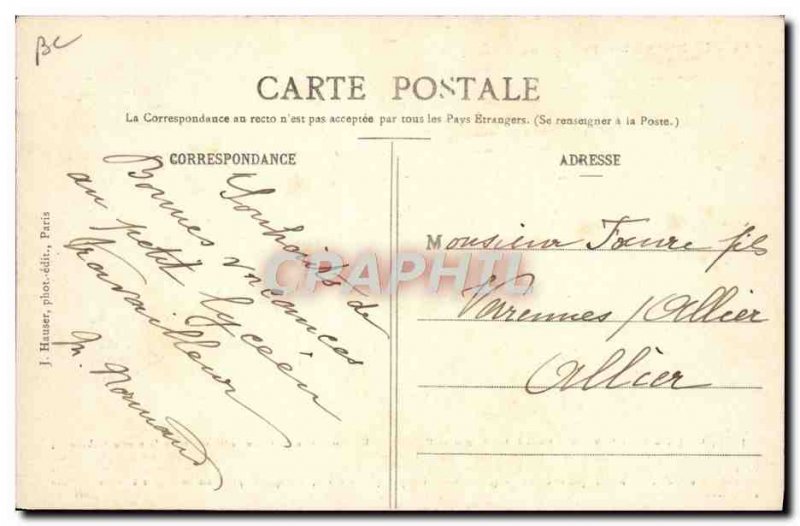 BC
CARTE POSTALE
La Correspondance au recto n'est pas acceptée par tous les Pays Étrangers. (Se renseigner à la Poste.)
CORRESPONDANCE
Souhaits de
Bonnes vacances
au petit lycéen
travailleur
M. Normand
ADRESSE
Monsieur Faure fils
Varennes / Allier
Allier
J. Hauser, phot.-édit., Paris
CPAPHIL